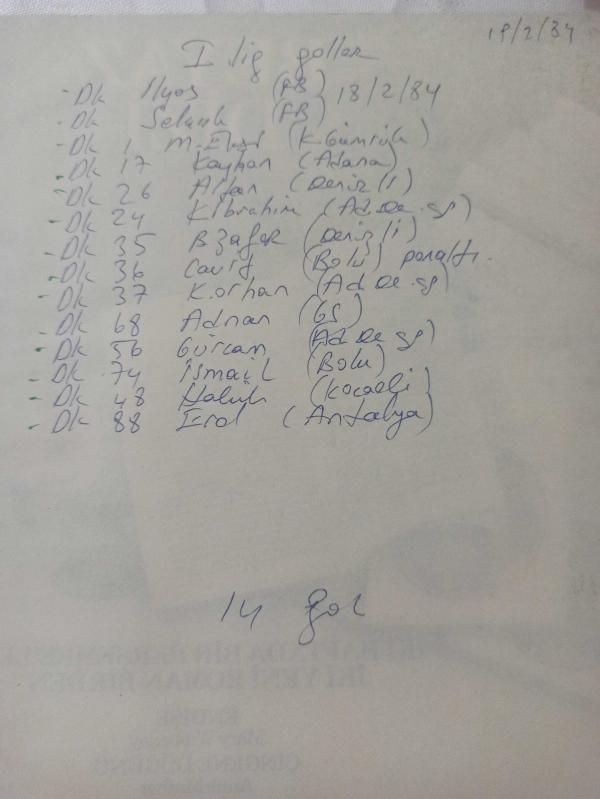 19/2/84
I lig goller
- Dk İlyas (FB) 18/2/84
- Dk Selçuk (FB)
- Dk 1 (K.Gümrük)
- Dk 17 Kayhan (Adana)
- Dk 26 Alfan (Denizli)
- Dk 24 K.İbrahim (Ad De. sp)
- Dk 35 B Zafer (Denizli)
- Dk 36 Cavit (Bolu) penaltı.
- Dk 37 K.Orhan (Ad De. sp)
- Dk 68 Adnan (GS)
- Dk 56 Gürcan (Ad De sp)
- Dk 74 İsmail (Bolu)
- Dk 48 Haluk (Kocaeli)
- Dk 88 Erol (Antalya)
14 gol